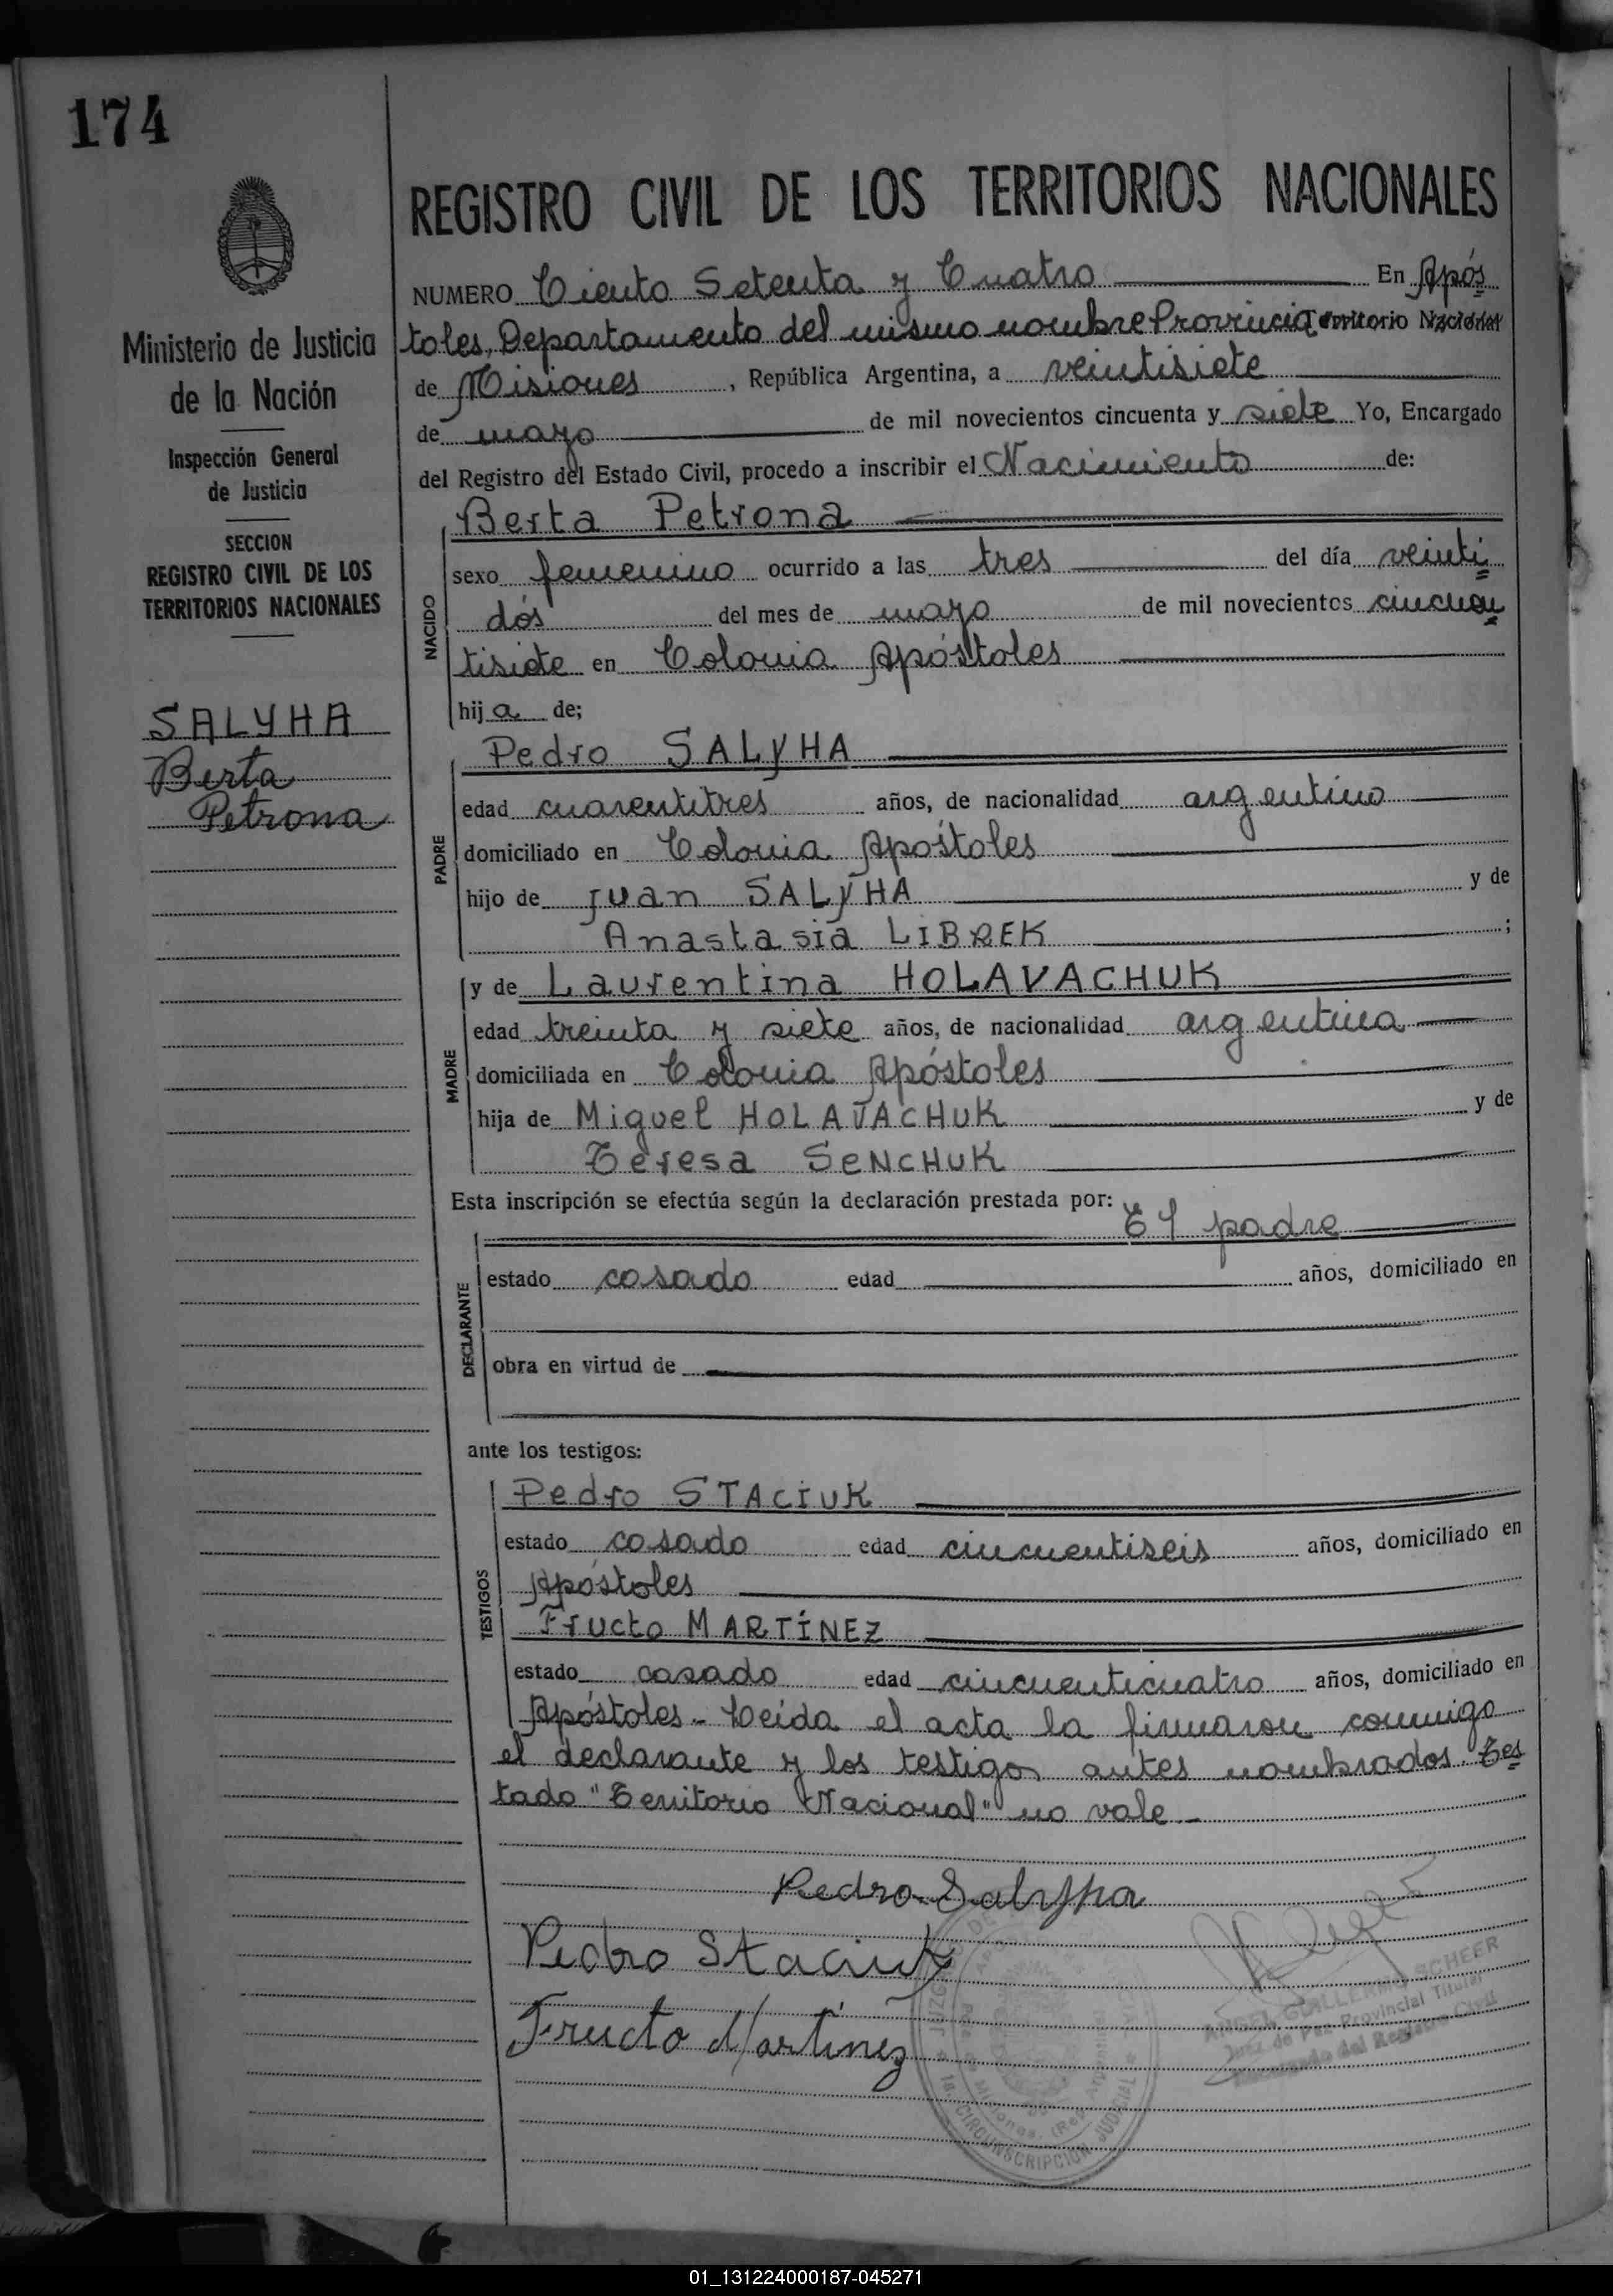 174
Ministerio de Justicia
de la Nación
Inspección General
de Justicia
SECCION
REGISTRO CIVIL DE LOS
TERRITORIOS NACIONALES
SALYHA
Berta
Petrona
REGISTRO CIVIL DE LOS TERRITORIOS NACIONALES
NUMERO Ciento Setenta y Cuatro En Após
toles, Departamento del mismo nombre Provincia Territorio Nacional
de Misiones, República Argentina, a veintisiete
de mayo de mil novecientos cincuenta y siete Yo, Encargado
del Registro del Estado Civil, procedo a inscribir el Nacimiento de:
Berta Petrona
NACIDO
sexo femenino ocurrido a las tres del día veinti
dós del mes de mayo de mil novecientos cincuen
tisiete en Colonia Apóstoles
hija de;
Pedro SALYHA
PADRE
edad cuarentitres años, de nacionalidad argentino
domiciliado en Colonia Apóstoles
hijo de Juan SALYHA y de
Anastasia LIBREK ;
y de Laurentina HOLAVACHUK
MADRE
edad treinta y siete años, de nacionalidad argentina
domiciliada en Colonia Apóstoles
hija de Miguel HOLAVACHUK y de
Teresa SENCHUK
Esta inscripción se efectúa según la declaración prestada por:
El padre
DECLARANTE
estado casado edad años, domiciliado en
obra en virtud de
ante los testigos:
Pedro STACIUK
TESTIGOS
estado casado edad cincuentiseis años, domiciliado en
Apóstoles
Fructo MARTÍNEZ
estado casado edad cincuenticuatro años, domiciliado en
Apóstoles.- Leída el acta la firmaron conmigo
el declarante y los testigos antes nombrados. Tes
tado "Territorio Nacional" no vale.-
Pedro Salyha
Pedro Staciuk
Fructo Martínez
ANGEL GUILLERMO SCHEER
Juez de Paz Provincial Titular
Encargado del Registro Civil
1a. CIRCUNSCRIPCION JUDICIAL
01_131224000187-045271